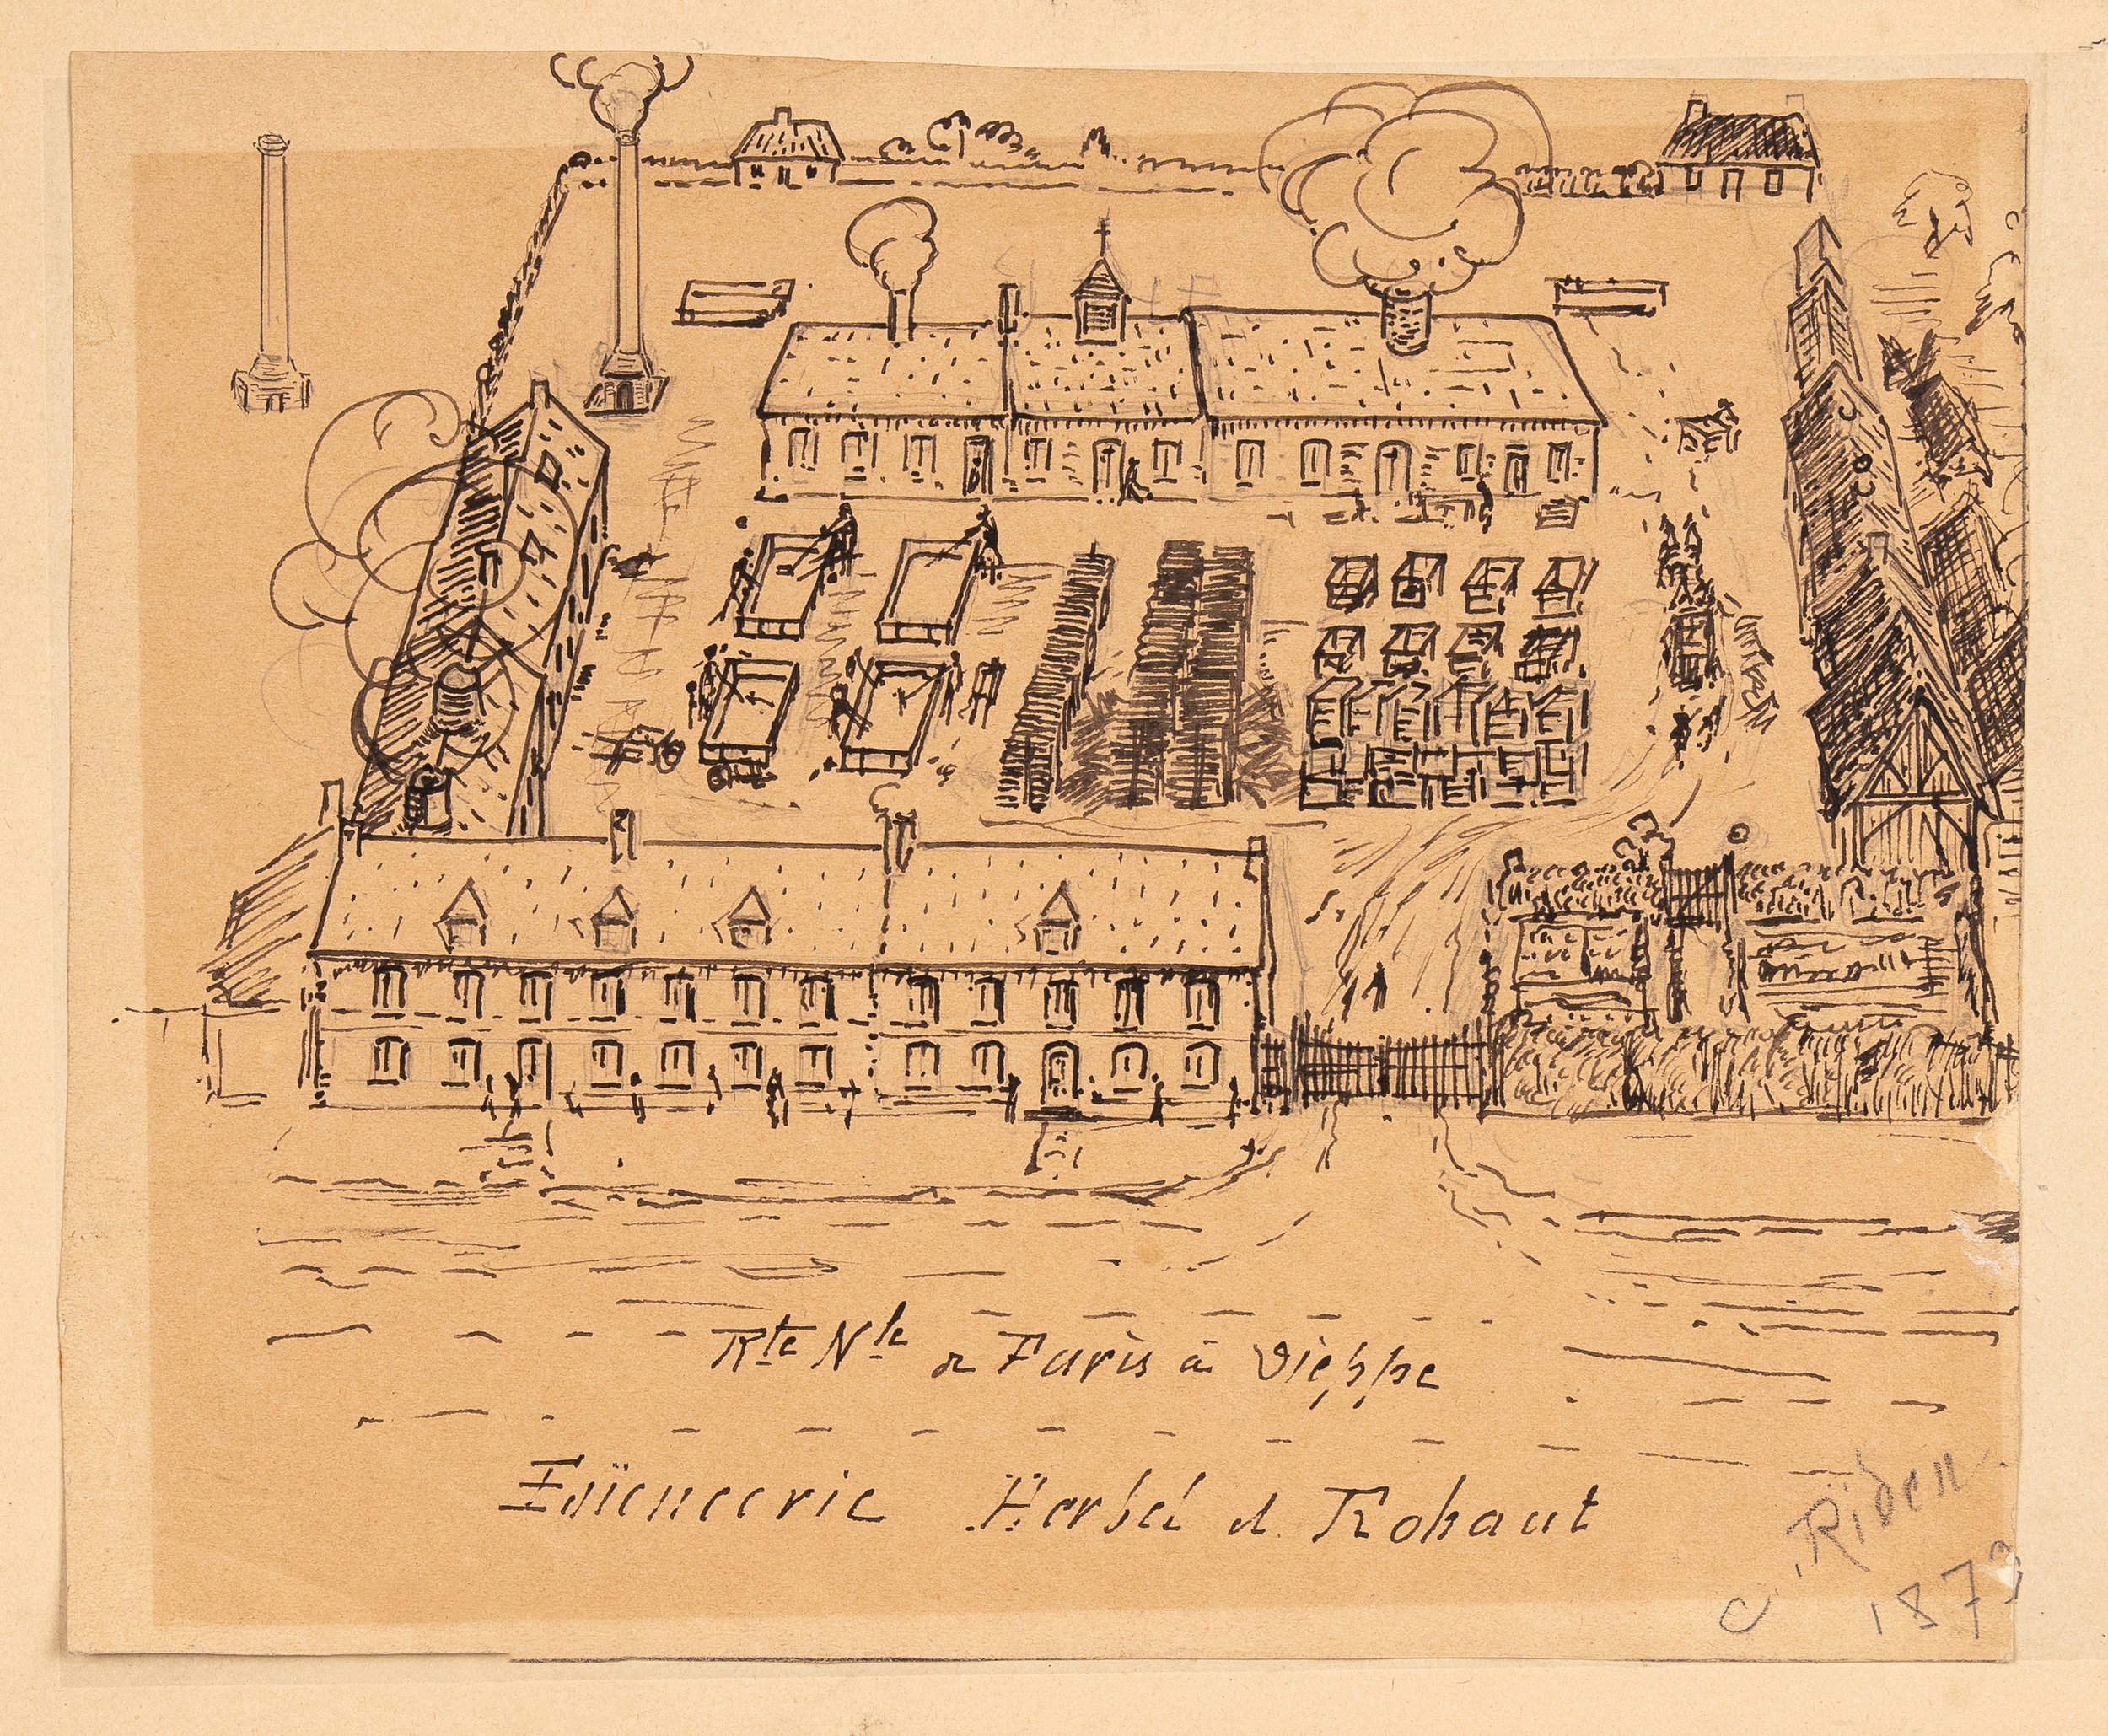 Rte Nle de Paris à Dieppe
Faïencerie Herbel et Rohaut
C. Riden
1873